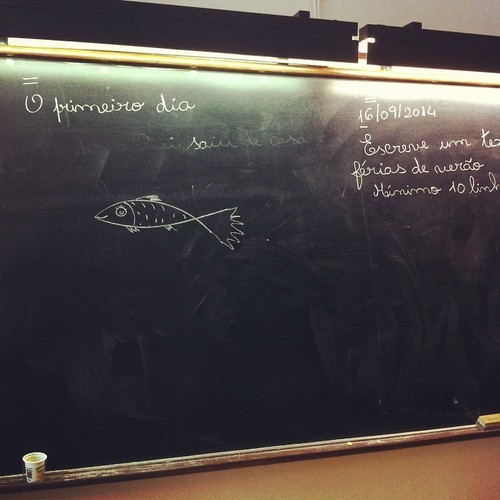 O primeiro dia
saiu de casa
16/09/2014
Escreve um tex
férias de verão
Mínimo 10 linh